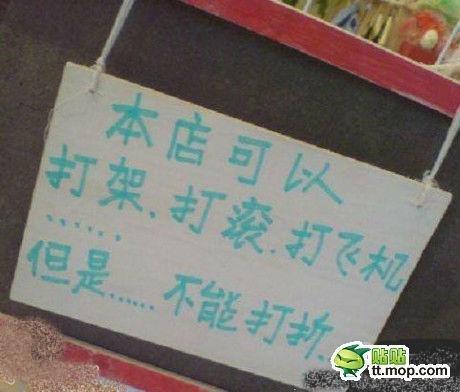 本店可以
打架、打滚、打飞机
……
但是……不能打折.
贴贴
tt.mop.com